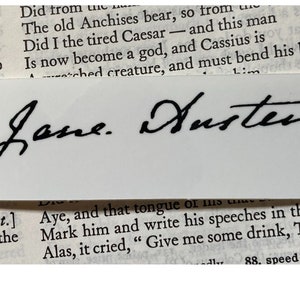 Did from the
The old Anchises bear, so from
Did I the tired Caesar — and this man
Is now become a god, and Cassius is
A wretched creature, and must bend his
Jane. Austen
Aye, and that tongue of his
t.] Mark him and write his speeches in th
the Alas, it cried, “ Give me some drink, T
88. speed